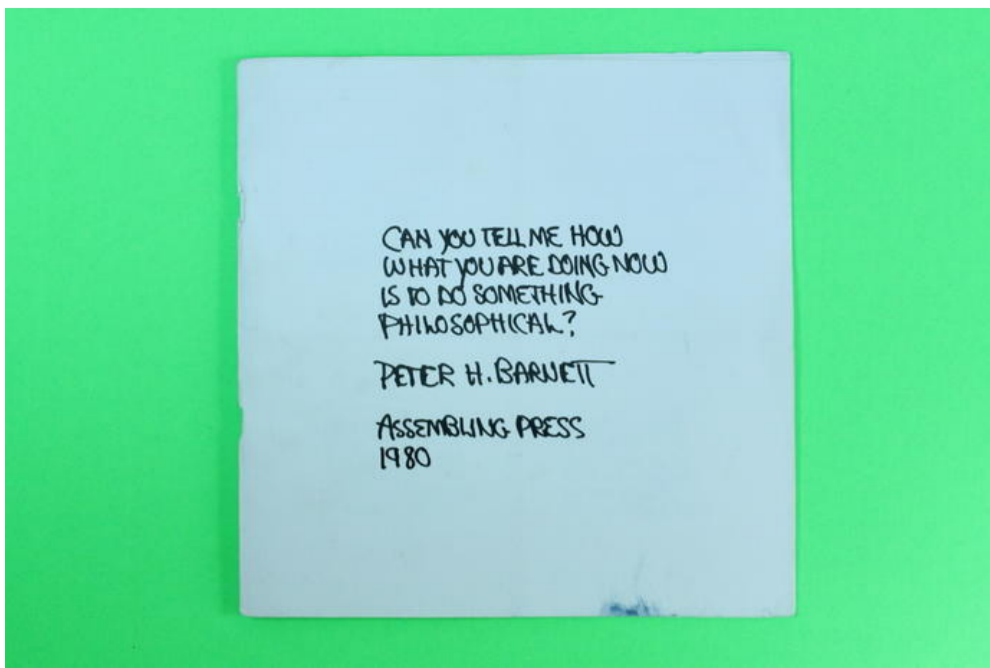 CAN YOU TELL ME HOW
WHAT YOU ARE DOING NOW
IS TO DO SOMETHING
PHILOSOPHICAL?
PETER H. BARNETT
ASSEMBLING PRESS
1980